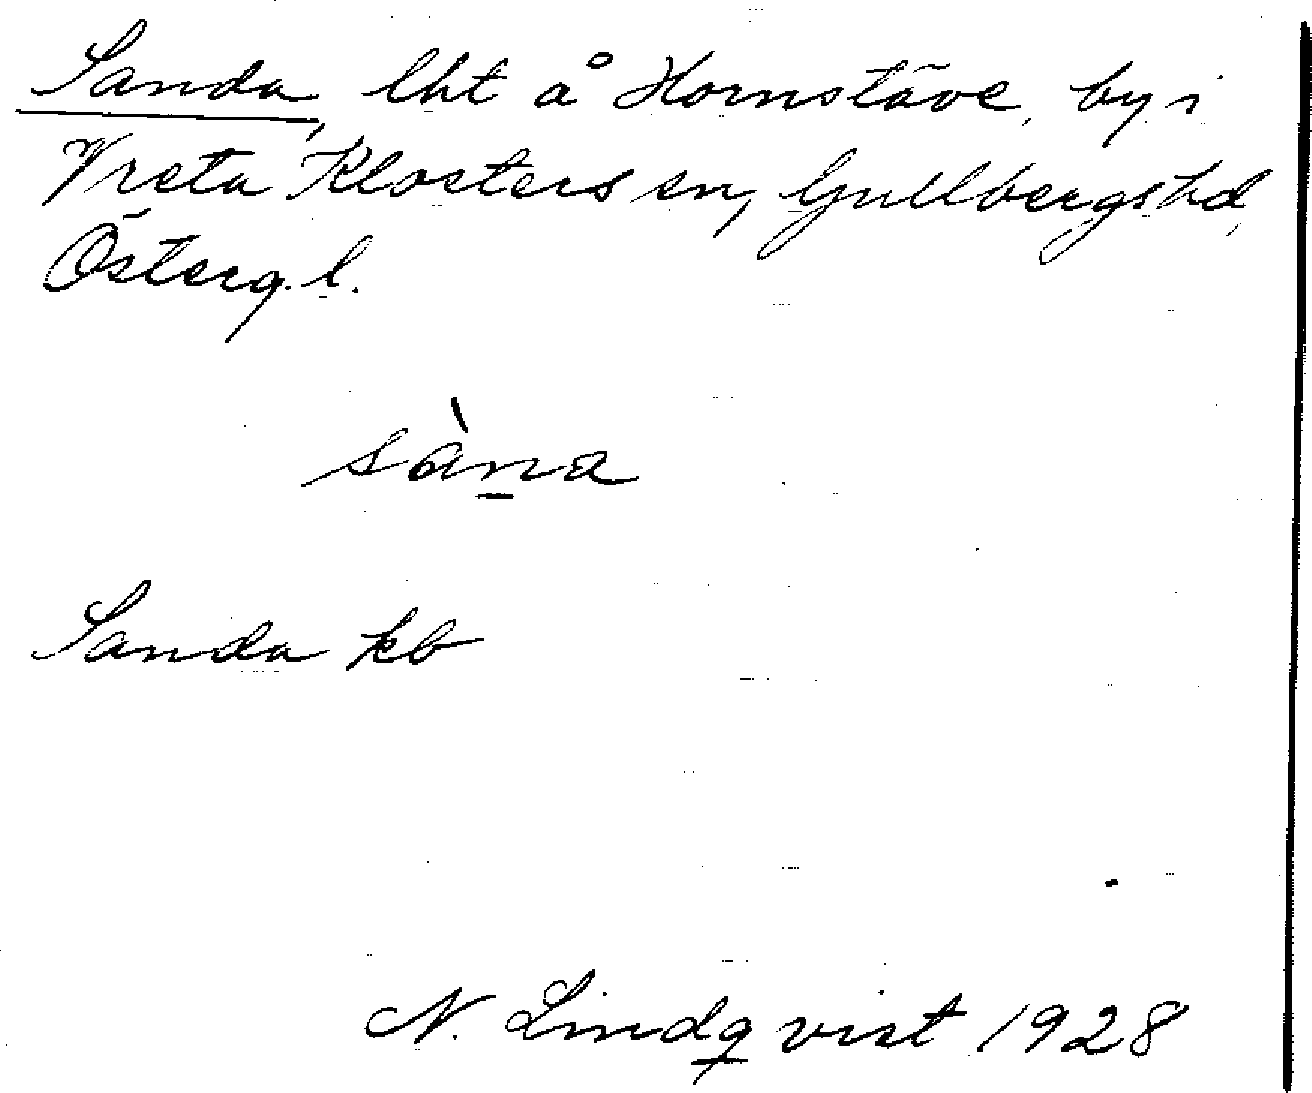 Sanda, lht å Hornstäve, by i
Vreta Klosters sn, Gullbergs hd,
Österg. l.
sàna
Sanda kb
N. Lindqvist 1928